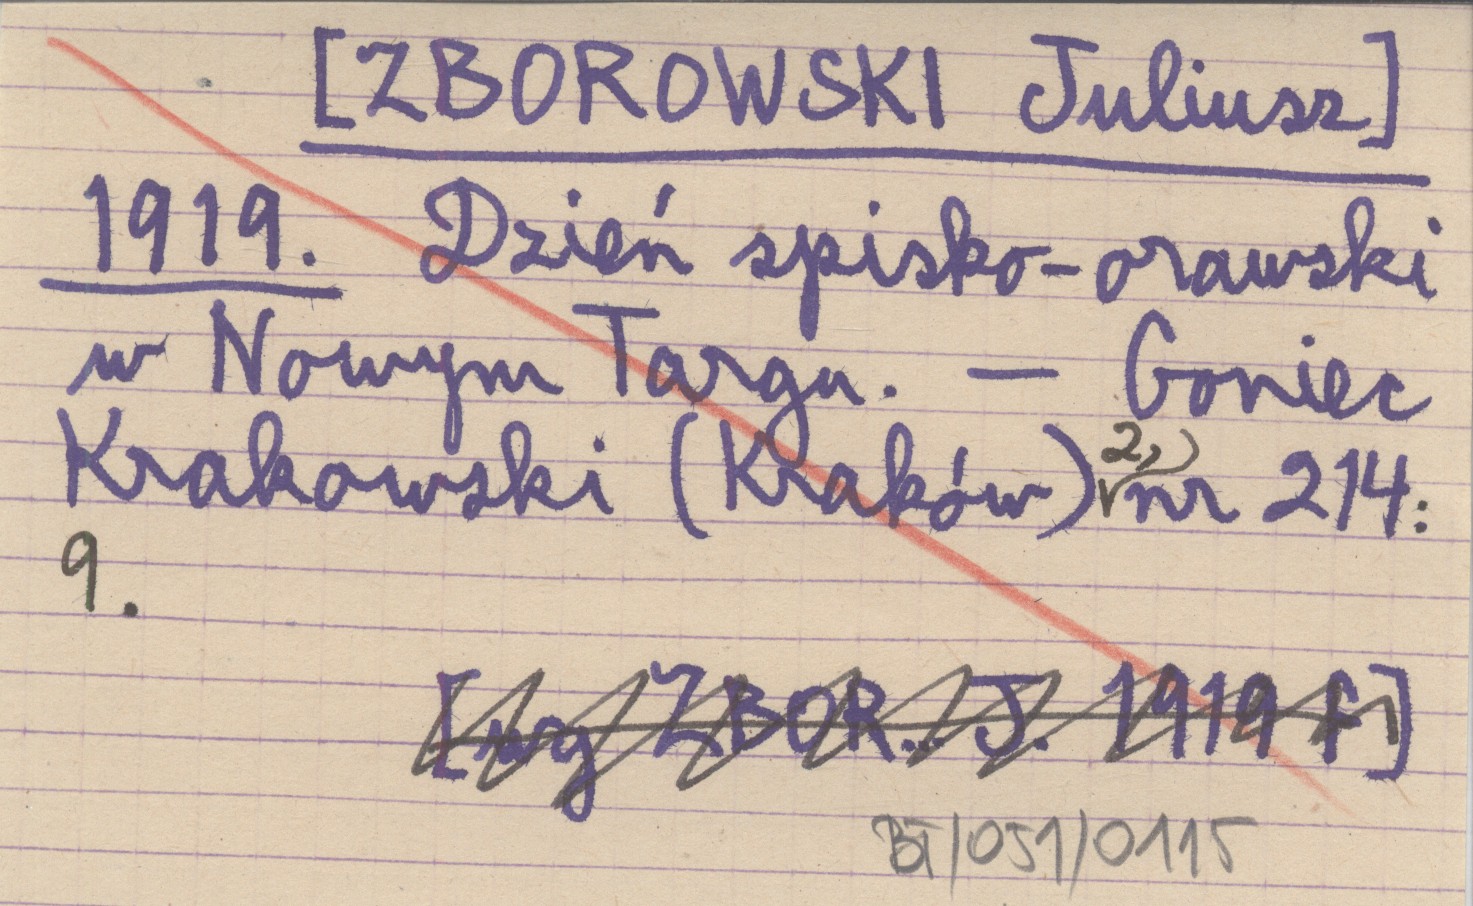 [ZBOROWSKI Juliusz]
1919. Dzień spisko-orawski
w Nowym Targu. — Goniec
Krakowski (Kraków) 2, nr 214:
9.
[wg ZBOR. J. 1919 f]
BT/051/0115